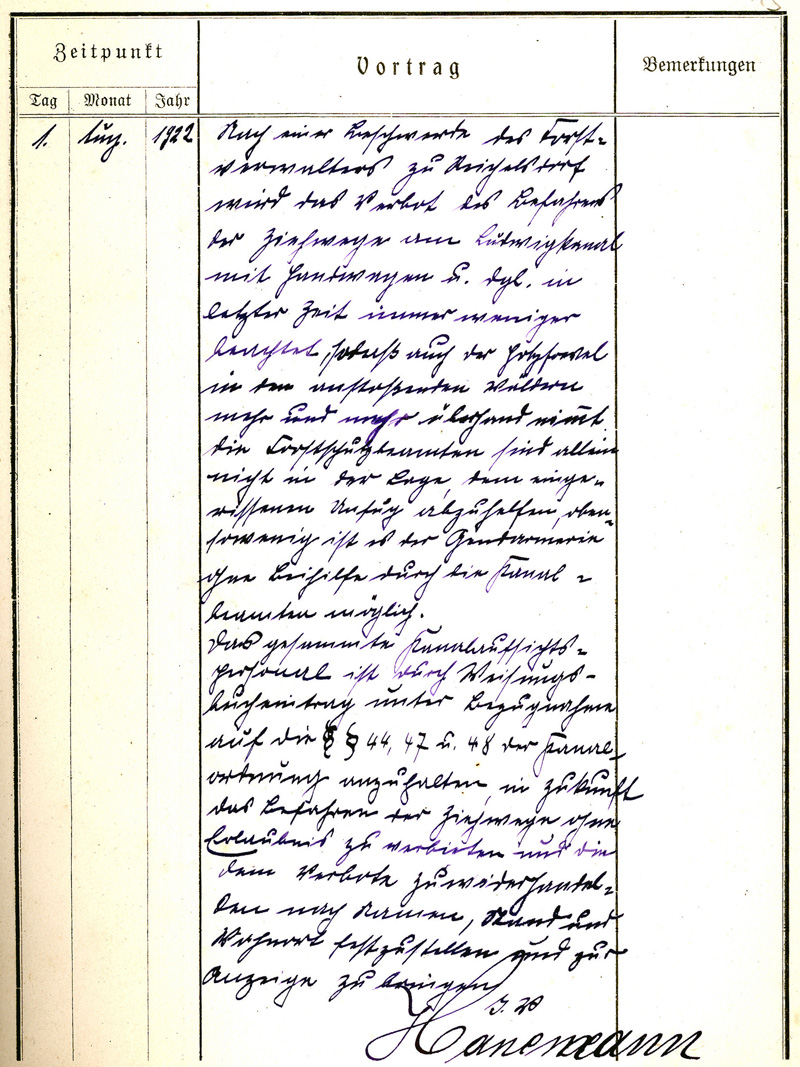 Zeitpunkt
Vortrag
Bemerkungen
Tag Monat Jahr
1. Aug. 1922 Nach einer Beschwerde des Forst-
verwalters zu Reichelsdorf
wird das Verbot des Befahrens
der Ziehwege am Ludwigkanal
mit Handwagen u. dgl. in
letzter Zeit immer weniger
beachtet, sodaß auch der Holzfrevel
in den anstoßenden Wäldern
mehr und mehr überhand nimmt.
Die Forstschutzbeamten sind allein
nicht in der Lage, dem einge-
rissenen Unfug abzuhelfen, eben-
sowenig ist es der Gendarmerie
ohne Beihilfe durch die Kanal-
beamten möglich.
Das gesammte Kanalaufsichts-
personal ist durch Weisungs-
bucheintrag unter Bezugnahme
auf die §§ 44, 47 u. 48 der Kanal-
ordnung anzuhalten, in Zukunft
das Befahren der Ziehwege ohne
Erlaubnis zu verbieten und die
dem Verbote zuwiderhandel-
den nach Namen, Stand und
Wohnort festzustellen und zur
Anzeige zu bringen.
I. V.
Hanemann